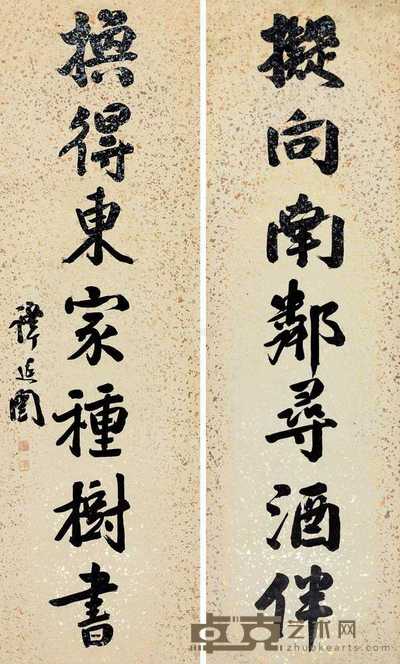 擬向南鄰尋酒伴
換得東家種樹書
譚延闓
卓克艺术网
zhuokearts.com